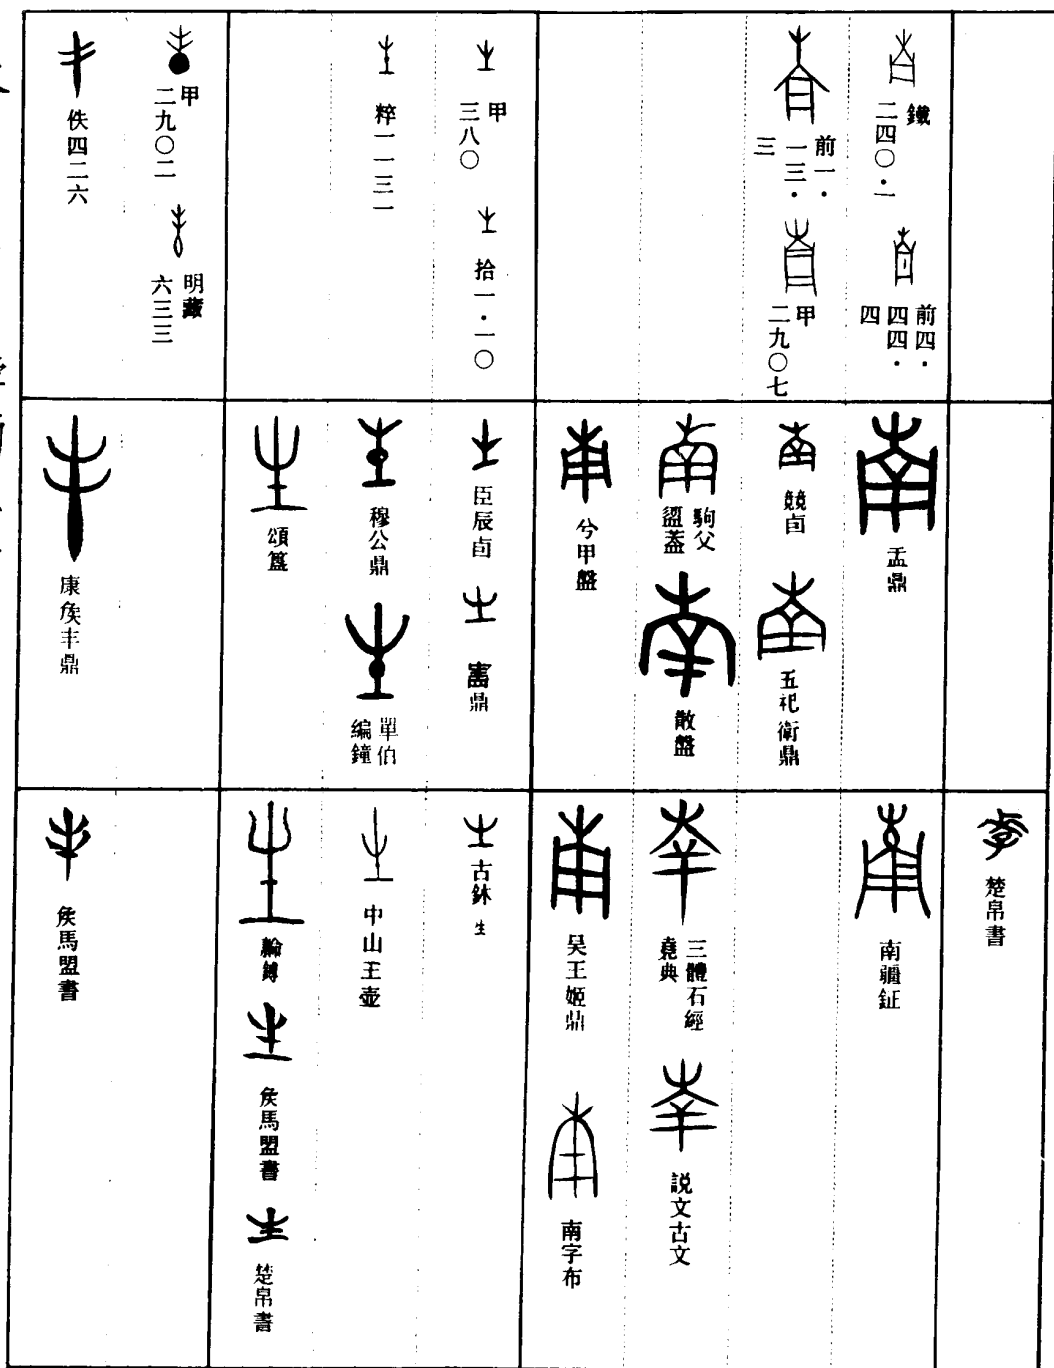 鐵二四〇·一
前四·四四·四
前一·一三·三
甲二九〇七
甲三八〇
拾一·一〇
粹一一三一
甲二九〇二
明藏六三三
佚四二六
盂鼎
競卣
五祀衛鼎
駒父盨蓋
散盤
兮甲盤
臣辰卣
𡩜鼎
穆公鼎
單伯編鐘
頌簋
康矦丰鼎
楚帛書
南疆鉦
三體石經堯典
説文古文
吴王姬鼎
南字布
古鉥 生
中山王壺
鎛
矦馬盟書
楚帛書
矦馬盟書